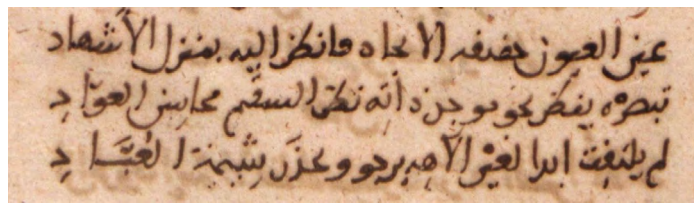 عين العيون حقيقة الايجاد فانظر اليه بمنزل الأشهاد
تبصره ينظر نحو موجد ذاته نظر السقيم محاسن العوّادِ
لم يلتفت ابدا لغير الاهه يرجو ويحذر شيمة العبّادِ